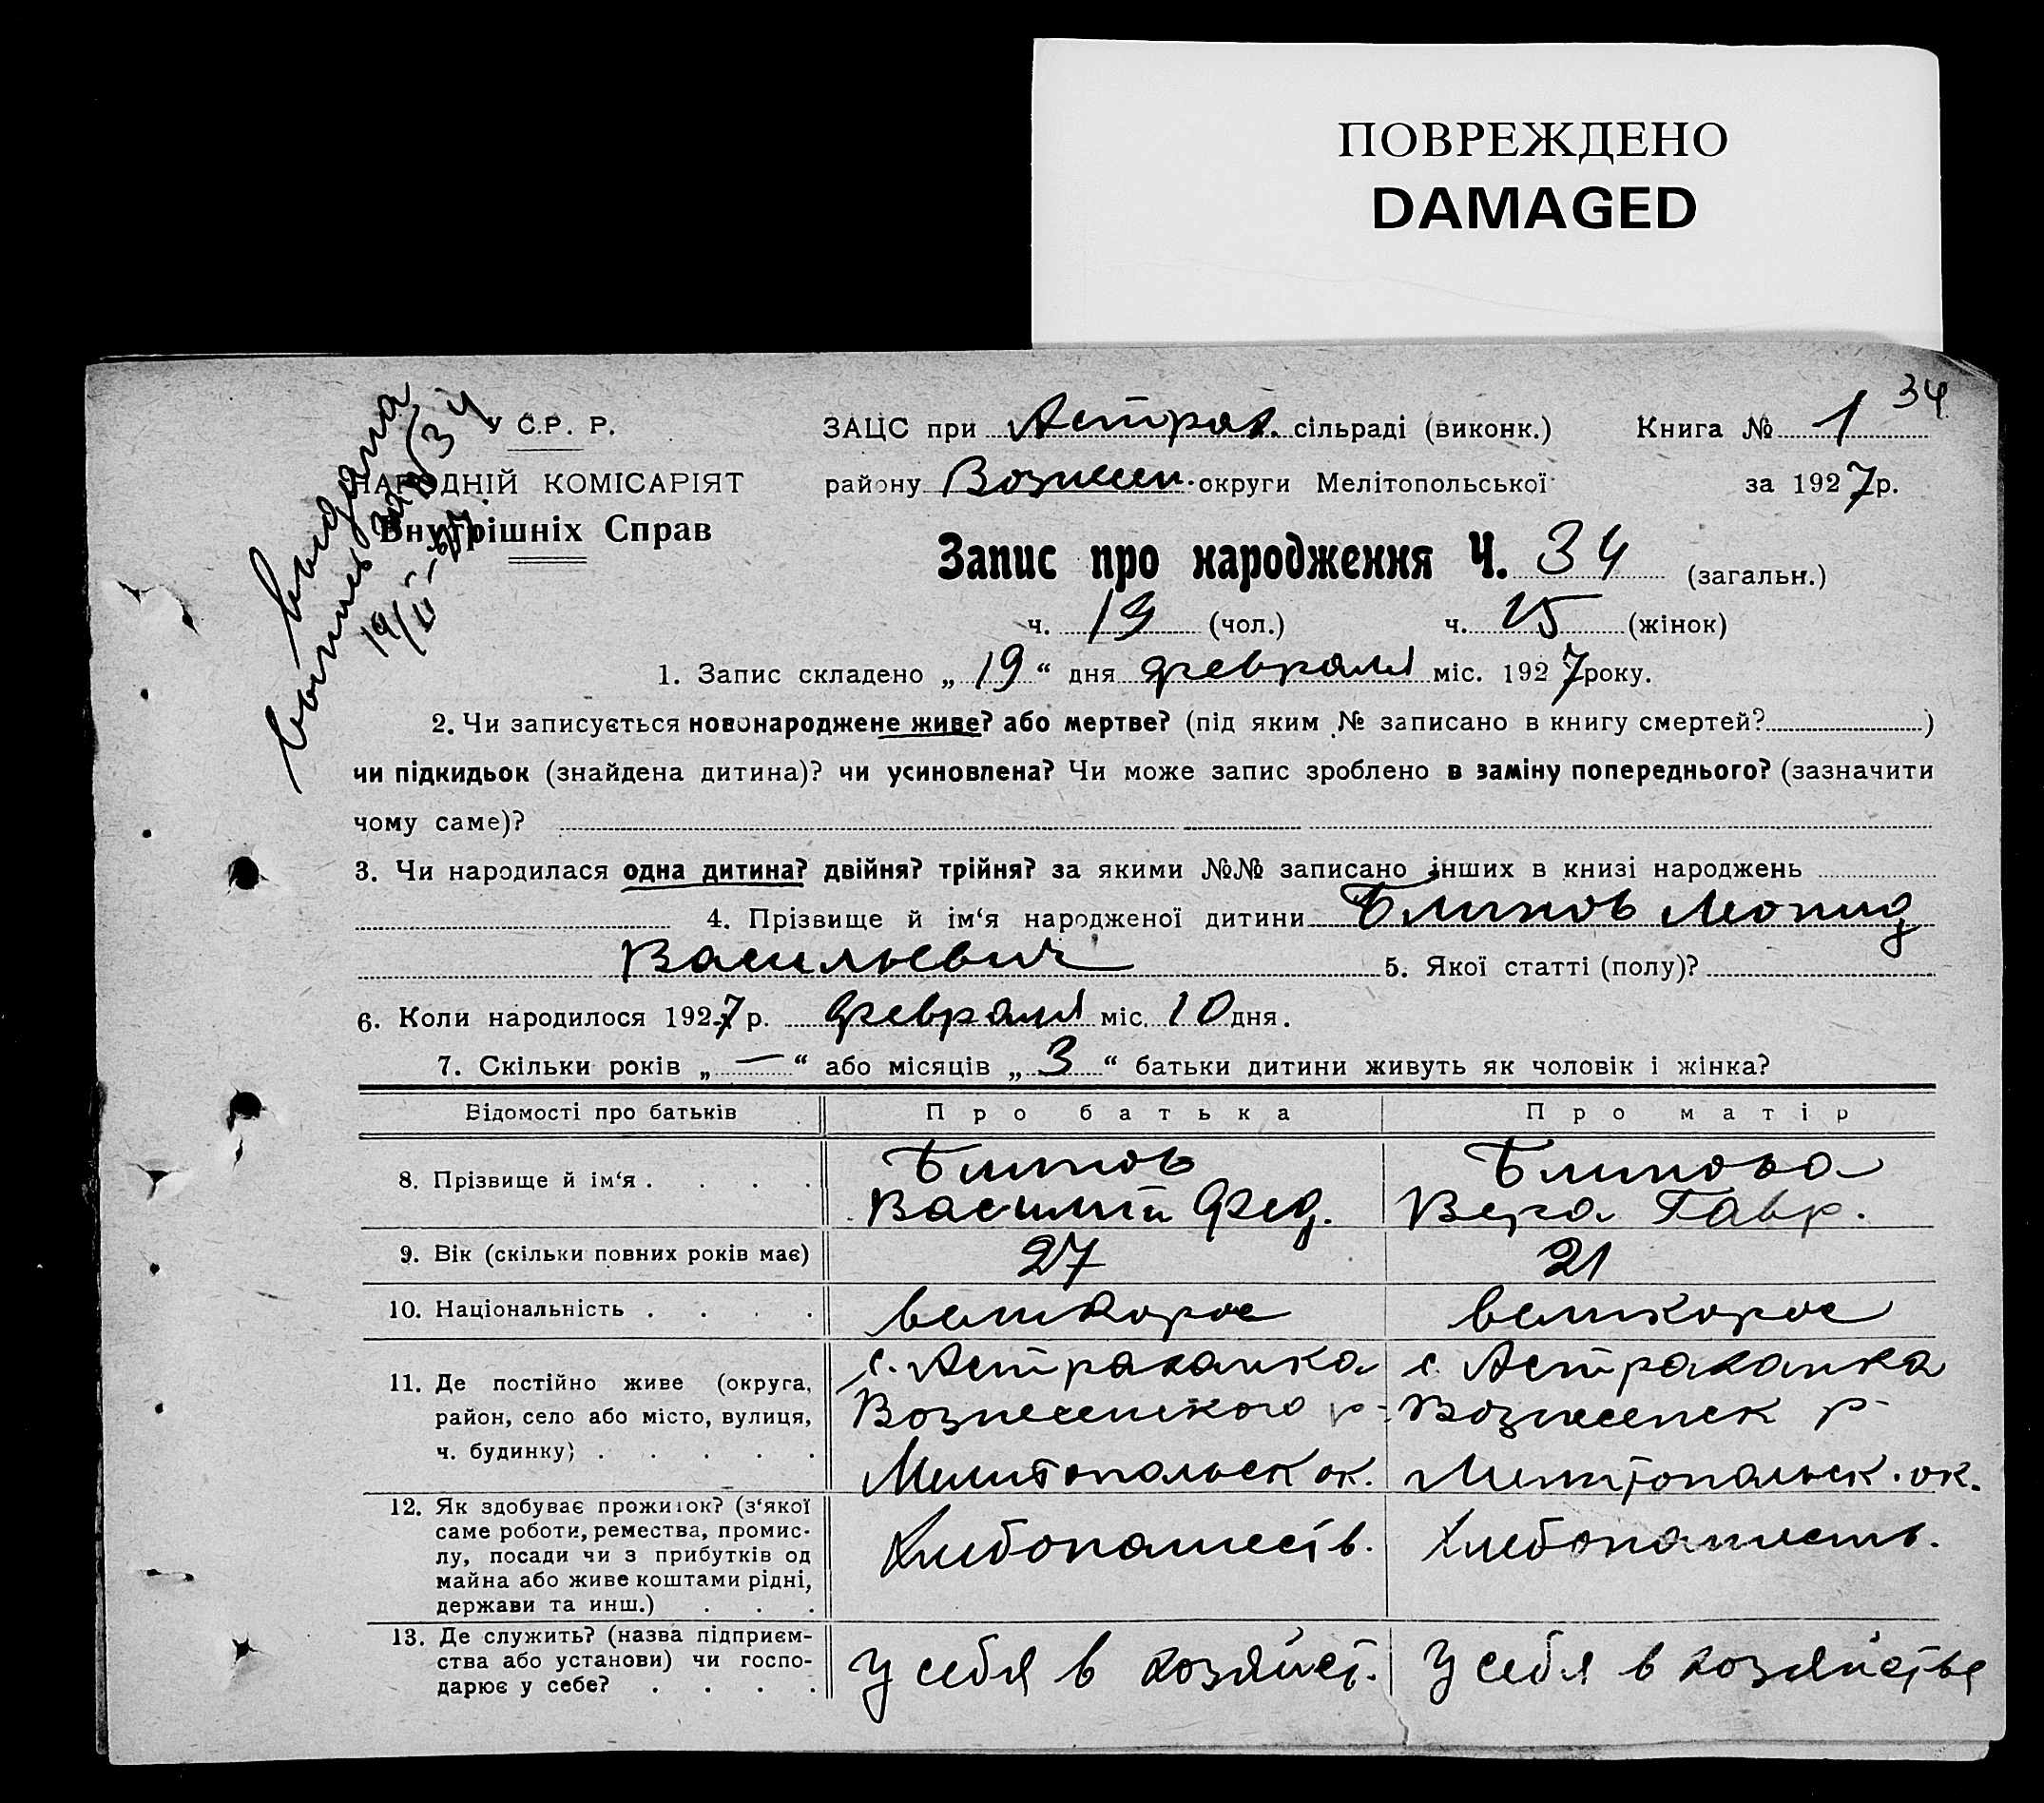 ПОВРЕЖДЕНО
DAMAGED
34
У С.Р. Р.
НАРОДНІЙ КОМІСАРІЯТ
Внутрішніх Справ
выдана
выпись
19/II-27
ЗАЦС при Астрах. сільраді (виконк.) Книга № 1
району Вознесен. округи Мелітопольської за 1927р.
Запис про народження Ч. 34 (загальн.)
ч. 19 (чол.) ч. 15 (жінок)
1. Запис складено „19“ дня февраля міс. 1927 року.
2. Чи записується новонароджене живе? або мертве? (під яким № записано в книгу смертей?)
чи підкидьок (знайдена дитина)? чи усиновлена? Чи може запис зроблено в заміну попереднього? (зазначити
чому саме)?
3. Чи народилася одна дитина? двійня? трійня? за якими №№ записано інших в книзі народжень
4. Прізвище й ім‘я народженої дитини Блинов Леонид
Васильевич 5. Якої статті (полу)?
6. Коли народилося 1927 р. февраля міс. 10 дня.
7. Скільки років „—“ або місяців „3“ батьки дитини живуть як чоловік і жінка?
Відомості про батьків Про батька Про матір
8. Прізвище й ім‘я . . . . Блинов Блинова
Василий Фед. Вера Гавр.
9. Вік (скільки повних років має) 27 21
10. Національність . . . . великорос великорос
11. Де постійно живе (округа, с. Астраханка с. Астраханка
район, село або місто, вулиця, Вознесенского р- Вознесенск р-
ч. будинку) . . . . . Мелитопольск ок. Мелитопольск. ок.
12. Як здобуває прожиток? (з‘якої
саме роботи, ремества, промис- Хлебопашеств. Хлебопашеств.
лу, посади чи з прибутків од
майна або живе коштами рідні,
держави та инш.) . . .
13. Де служить? (назва підприєм-
ства або установи) чи госпо- У себя в хозяйст. У себя в хозяйстве
дарює у себе? . . . .